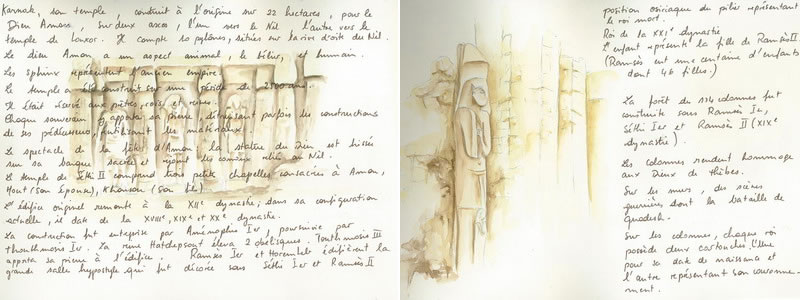 Karnak, son temple, construit à l'origine sur 22 hectares, pour le
Dieu Amon, sur deux axes, l'un vers le Nil l'autre vers le
temple de Louxor. Il compte 10 pylônes, situés sur la rive d'oite du Nil.
Le dieu Amon a un aspect animal, le bélier, et humain.
Les sphinx représentent l'ancien empire.
Le temple a été construit sur une période de 2000 ans.
Il était réservé aux prêtres, rois et reines.
Chaque souverain y apporta sa pierre, détruisant parfois les constructions
de ses prédécesseurs, utilisant les matériaux.
Le spectacle de la fête d'Amon la statue du Dieu est hissée
sur sa barque sacrée et rejoint les canaux reliés au Nil.
Le temple de Séthi II comprend trois petites chapelles consacrées à Amon,
Mout (son épouse), Khonsou (son fils)
L'édifice originel remonte à la XIIe dynastie; dans sa configuration
actuelle, il date de la XVIIIe, XIXe et XXe dynastie.
La construction fut entreprise par Aménophis Ier, poursuivie par
Thouthmosis Ier. La reine Hatchepsout éleva 2 obélisques. Touthmosis III
apporta sa pierre à l'édifice. Ramsès Ier et Horemheb édifièrent la
grande salle hypostyle qui fut décorée sous Séthi Ier et Ramsès II
position osiriaque du pilier représentant
le roi mort.
Roi de la XXIe dynastie
L'enfant représente la fille de Ramsès II
(Ramsès eut une centaine d'enfants
dont 46 filles.)
La forêt de 134 colonnes fut
construite sous Ramsès Ier,
Séthi Ier et Ramsès II (XIXe
dynastie).
Les colonnes rendent hommage
aux Dieux de Thèbes.
Sur les murs, des scènes
guerrières dont la bataille de
Quadesh.
Sur les colonnes, chaque roi
possède deux cartouches. L'une
pour sa date de naissance et
l'autre représentant son couronne-
ment.